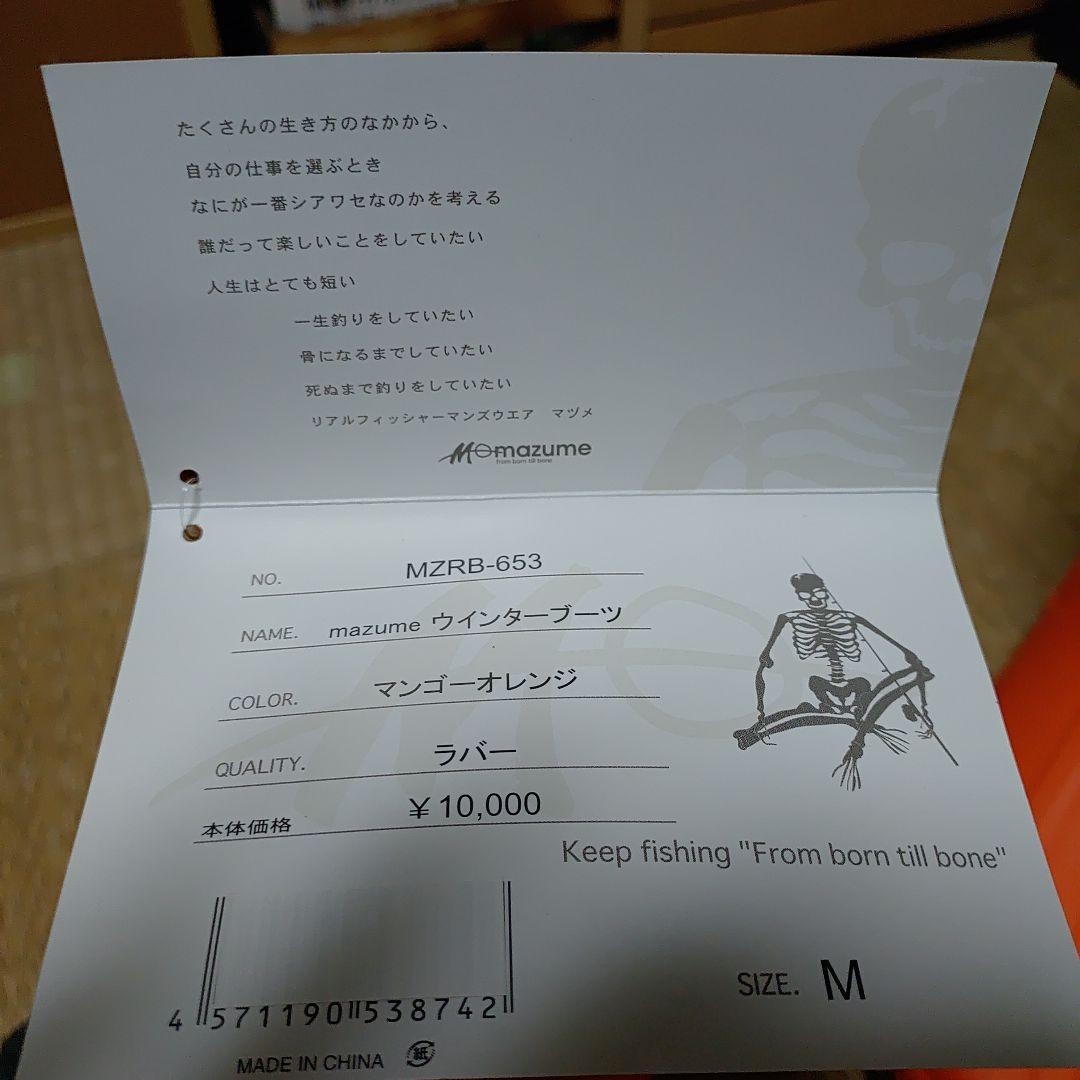 たくさんの生き方のなかから、
自分の仕事を選ぶとき
なにが一番シアワセなのかを考える
誰だって楽しいことをしていたい
人生はとても短い
一生釣りをしていたい
骨になるまでしていたい
死ぬまで釣りをしていたい
リアルフィッシャーマンズウエア マヅメ
mazume
from born till bone
NO. MZRB-653
NAME. mazume ウインターブーツ
COLOR. マンゴーオレンジ
QUALITY. ラバー
本体価格 ¥10,000
Keep fishing "From born till bone"
SIZE. M
4 571190 538742
MADE IN CHINA 紙